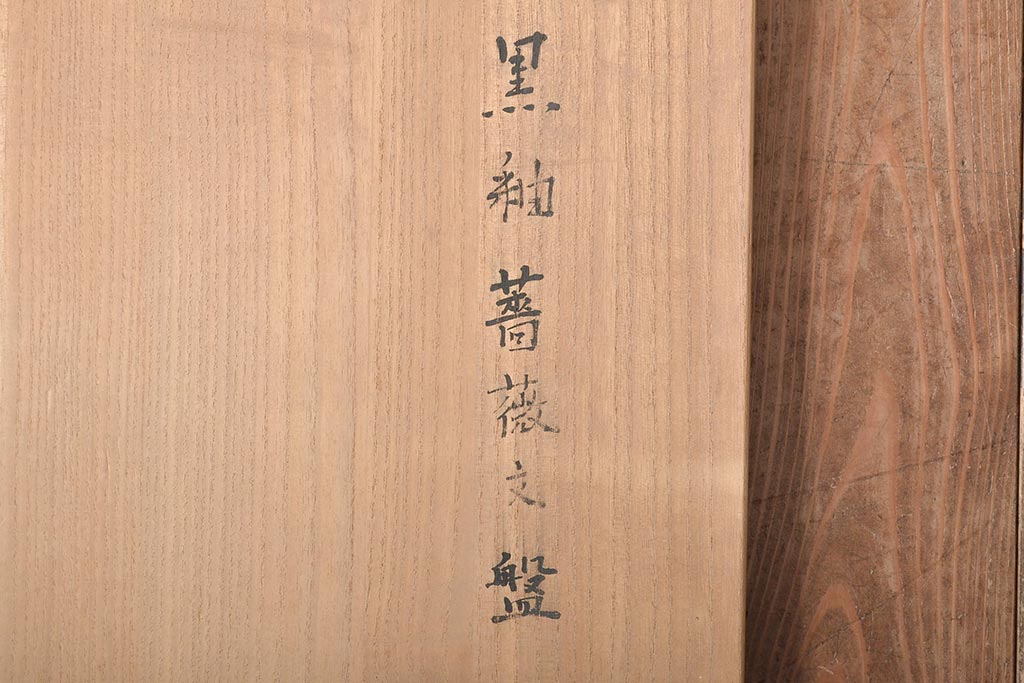 黒釉薔薇文盤